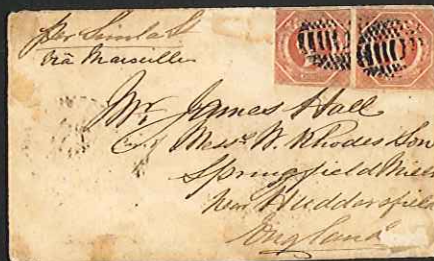 per Simla St
via Marseilles
Mr. James Hall
Messrs W. Rhodes Son
Springfield Mills
near Huddersfield
England